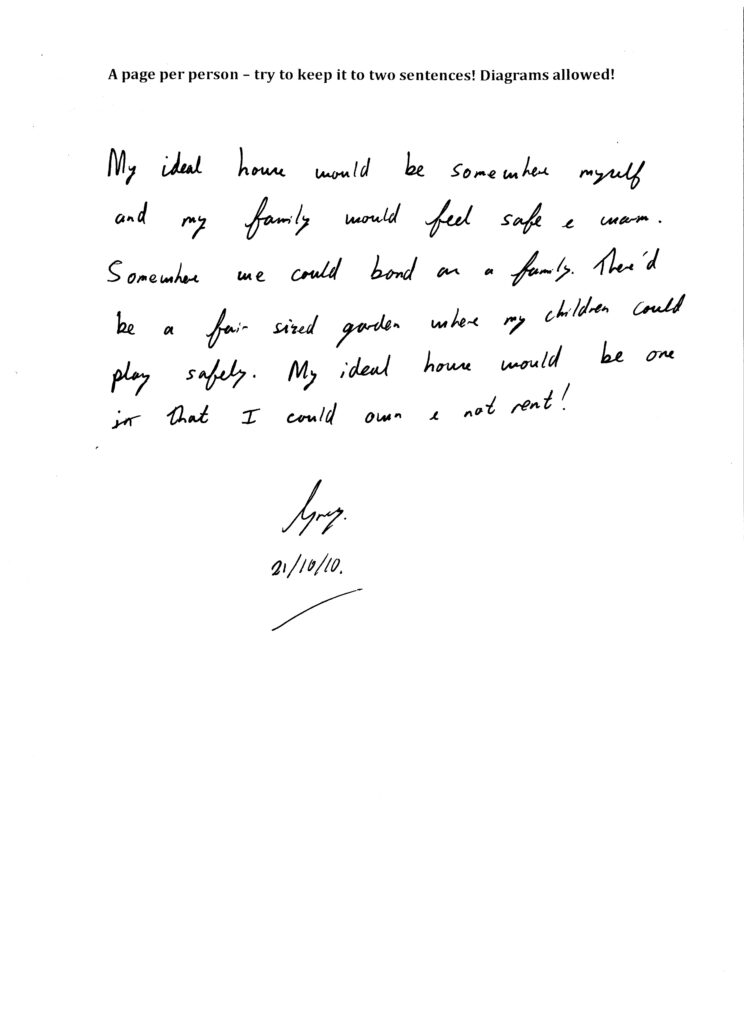 A page per person – try to keep it to two sentences! Diagrams allowed!
My ideal house would be somewhere myself
and my family would feel safe & warm.
Somewhere we could bond as a family. There'd
be a fair sized garden where my children could
play safely. My ideal house would be one
that I could own & not rent!
Greg.
21/10/10.